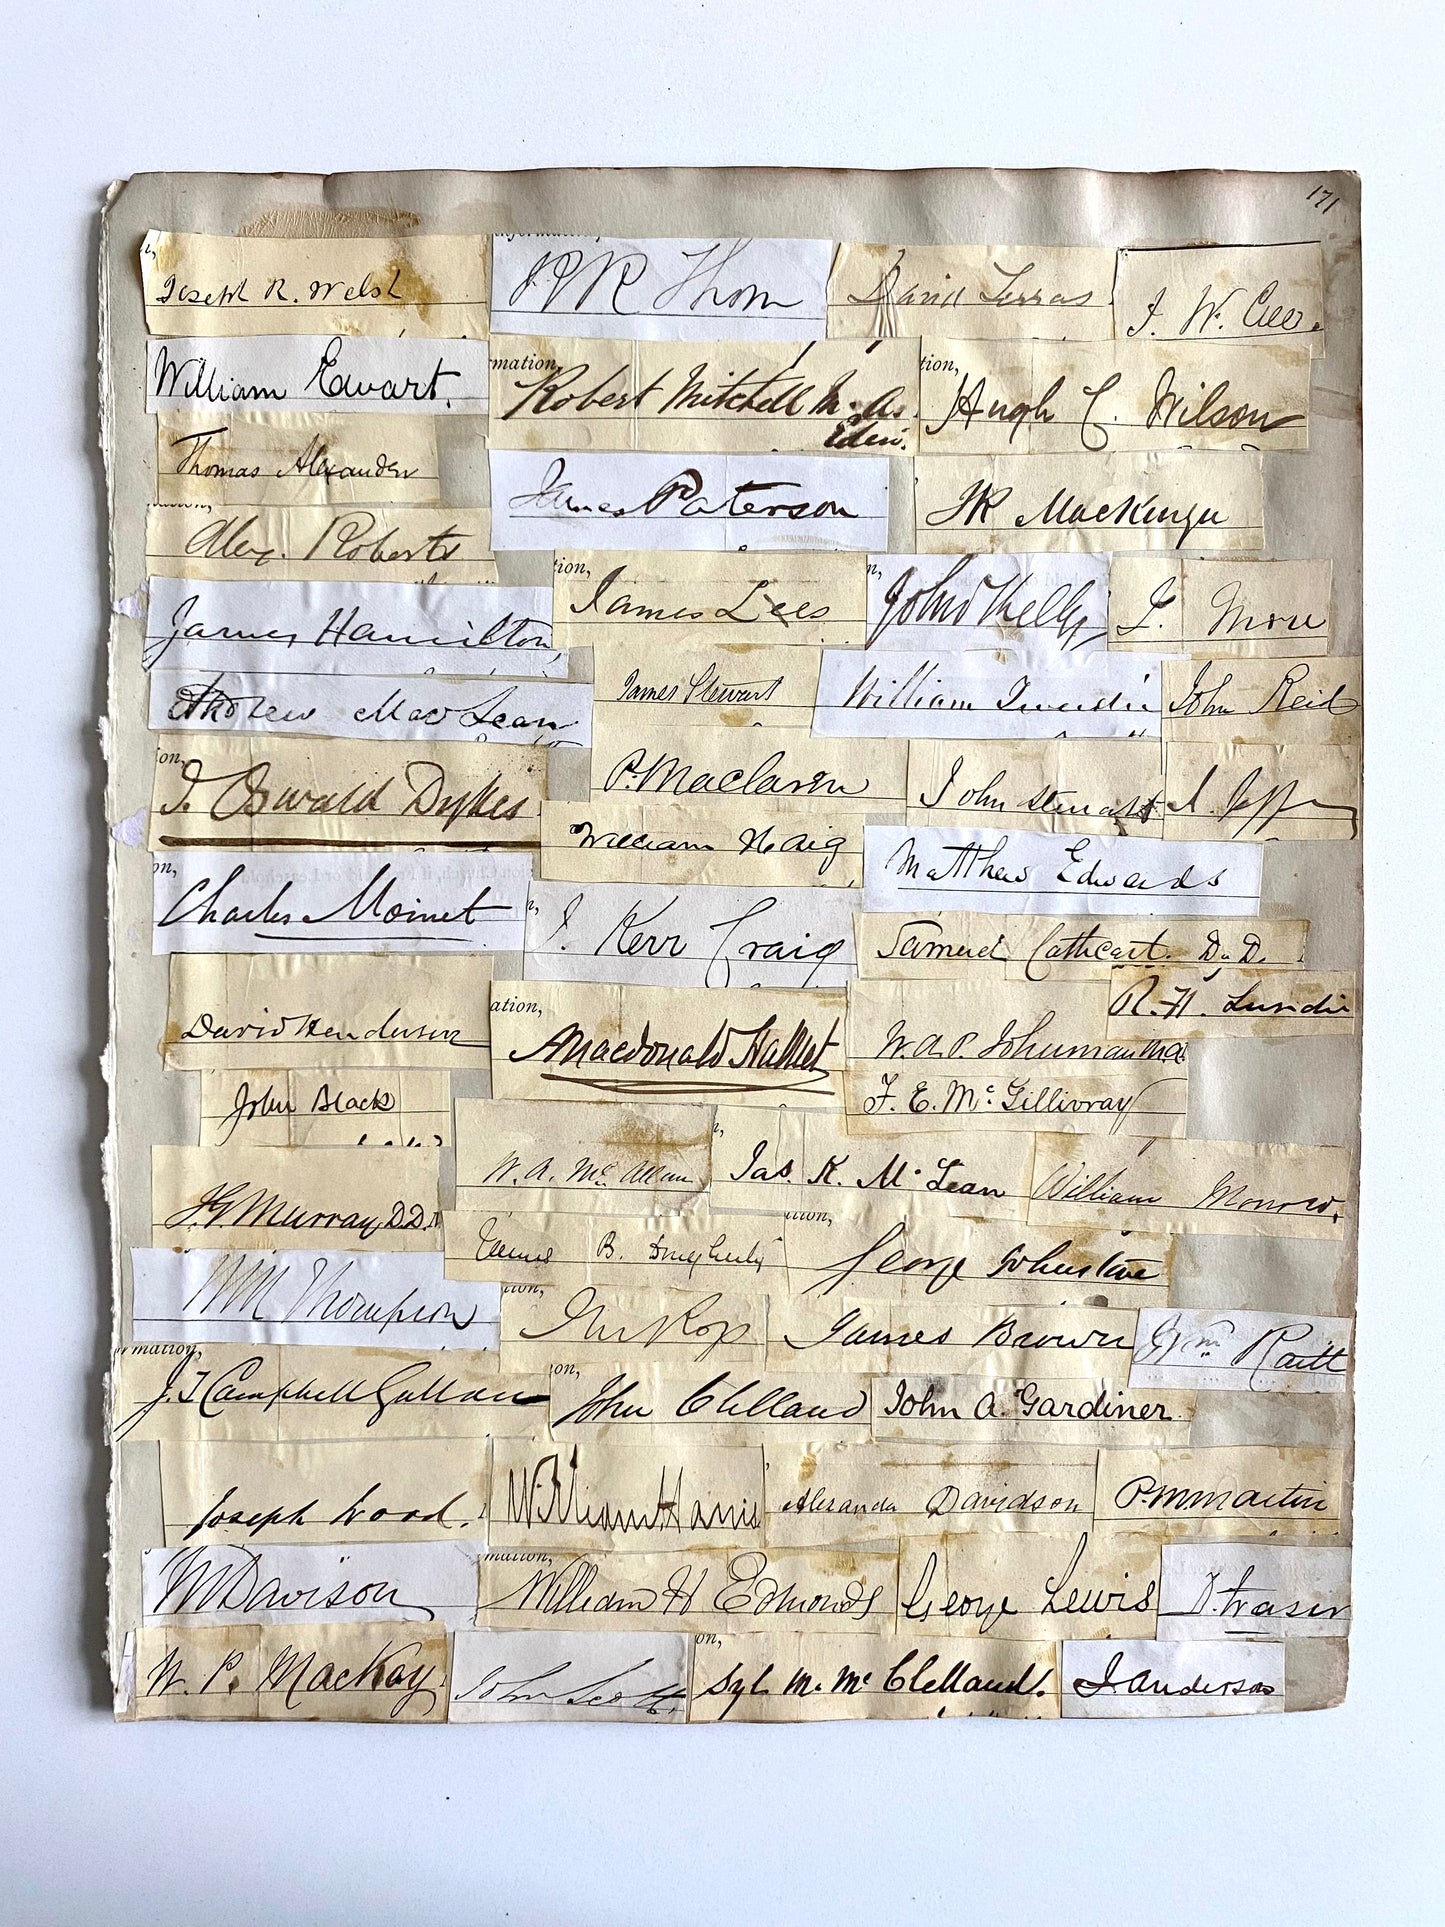 171
Joseph R. Welsh
nformation,
J P R Thom
David
J. W.
William Ewart.
rmation,
Robert Mitchell M. A.
Edin.
tion,
Hugh C. Wilson
Thomas Alexander
James Paterson
JR MacKenzie
Alex. Roberts
tion,
James Lees
n,
John Kelly
J. More
James Hamilton,
Andrew MacLean
James Stewart
William Tweedie
John Reid
on,
J. Oswald Dykes
P. Maclaren
John Stewart
William Haig
Matthew Edwards
on,
Charles Moinet
n,
J. Kerr Craig
Samuel Cathcart. D.D.
R. H. Lundie
David Henderson
ation,
A Macdonald Hallet
W. A. P. Johnman M.A.
F. E. McGillivray
John Black
W. A. Mc Allan
Jas. K. McLean
William Morrow.
J G Murray D.D.
James B. Dougherty
George Johnstone
WM Thompson
tion,
James Brown
Wm Raitt
rmation,
J. T. Campbell Gullan
on,
John Clelland
John A. Gardiner
Joseph Wood.
William Harris
Alexander Davidson
P. M Martin
W Davison
mation,
William H Edmonds
George Lewis
D. Fraser
W. P. MacKay
John Scott
on,
Syl. M. Mc Clelland.
J. Anderson